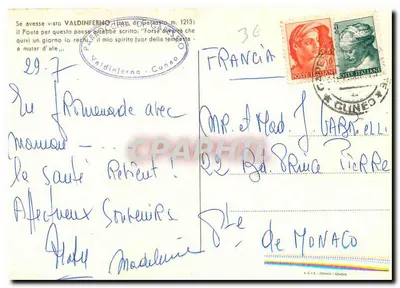 Se avesse visto VALDINFERNO (Dal di Garessio m. 1213)
il Poeta per questo paese avrebbe scritto: "Forse avverrà che
quivi un giorno io rechi il mio spirito fuor della tempesta
e mutar d'ale,,.
Valdinferno - Cuneo
3€
29.7
Francia
POSTE ITALIANE
POSTE ITALIANE
CUNEO
En Promenade avec
maman
la santé Revient!
Affectueux Souvenirs
Madeleine
CPARAMA
Mr et Mad. J.
22 Bd. Prince Pierre
Pte de MONACO